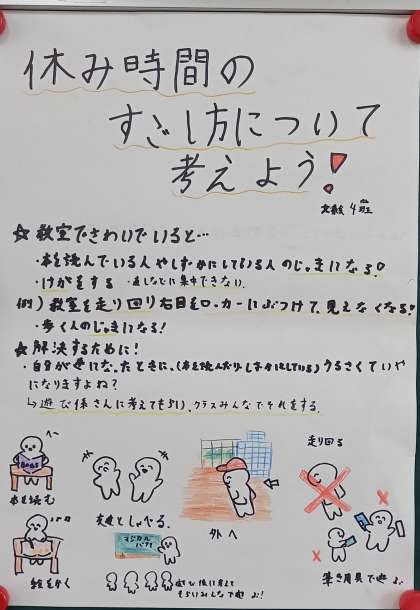 休み時間の
すごし方について
考えよう!
4班
☆教室でさわいでいると…
・本を読んでいる人やしずかにしている人のじゃまになる!
・けがをする ・直しなどに集中できない
例)教室を走り回り右目をロッカーにぶつけて、見えなくなる!
・歩く人のじゃまになる!
☆解決するために!
・自分が逆になったときに、(本を読んだりしずかにしている)うるさくていや
になりますよね?
↳遊び係さんに考えてもらい、クラスみんなでそれをする。
本を読む
絵をかく
友達としゃべる。
外へ
走り回る
筆き用具で遊ぶ!
遊び係に考えて
もらいみんなで遊ぶ!